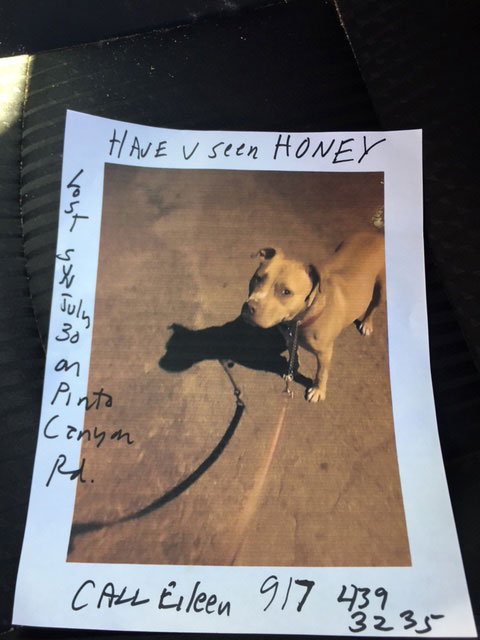 HAVE U seen HONEY
LOST
SUN
July
30
on
Pinto
Canyon
Rd.
CALL Eileen 917 439
3235